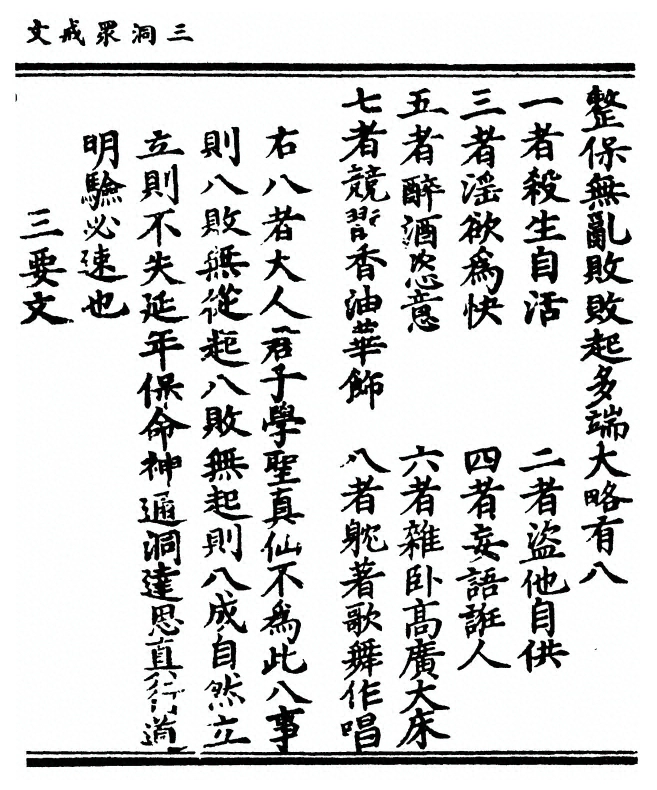 三洞眾戒文
整保無亂敗敗起多端大略有八
一者殺生自活 二者盜他自供
三者淫欲為快 四者妄語誑人
五者醉酒恣意 六者雜臥高廣大床
七者競習香油華飾 八者躭著歌舞作唱
右八者大人君子學聖真仙不為此八事
則八敗無從起八敗無起則八成自然立
立則不失延年保命神通洞達思真行道
明驗必速也
三要文